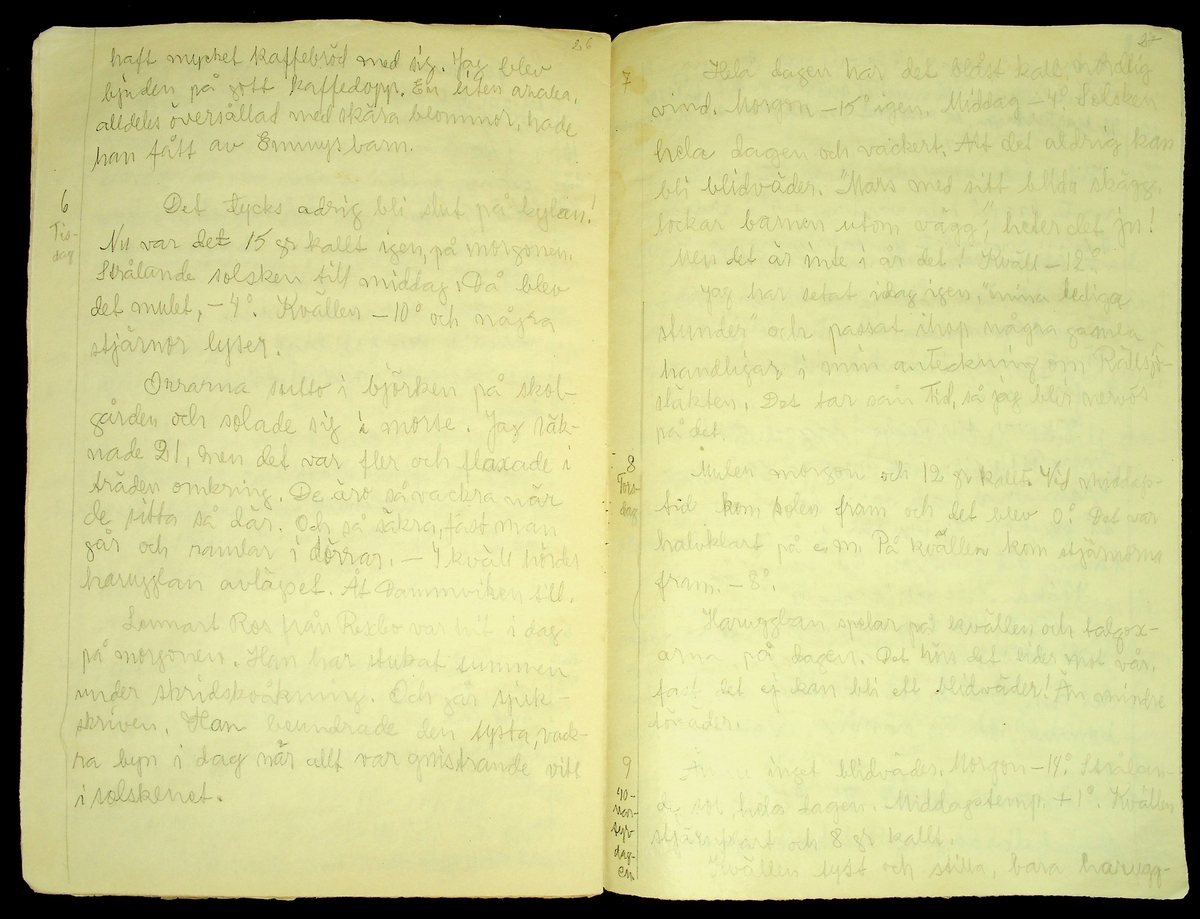 26
haft mycket kaffebröd med sig. Jag blev
bjuden på gott kaffedopp. En liten azalea,
alldeles översållad med skära blommor, hade
han fått av Emmys barn.
6
Tis-
dag
Det tycks adrig bli slut på kylan!
Nu var det 15 gr kallt igen, på morgonen.
Strålande solsken till middag. Då blev
det mulet, -4°. Kvällen -10° och några
stjärnor lyser.
Orrarna sutto i björken på skol-
gården och solade sig i morse. Jag räk-
nade 21, men det var fler och flaxade i
träden omkring. De äro så vackra när
de sitta så där. Och så säkra, fast man
går och ramlar i dörrar. — I kväll hördes
harugglan avlägset. Åt Dammviken till.
Lennart Ros från Rexbo var hit i dag
på morgonen. Han har stukat tummen
under skridskoåkning. Och går sjuk-
skriven. Han beundrade den tysta, vack-
ra byn i dag när allt var gnistrande vitt
i solskenet.
27
7
Hela dagen har det blåst kall, nordlig
vind. Morgon -15° igen. Middag -4°. Solsken
hela dagen och vackert. Att det aldrig kan
bli blidväder. "Mars med sitt blida skägg,
lockar barnen utom vägg", heter det ju!
Men det är inte i år det! Kväll -12°.
Jag har setat idag igen, "mina lediga
stunder" och passat ihop några gamla
handligar i min anteckning om Rättsjö-
släkten. Det tar sån tid, så jag blir nervös
på det.
8
Tors-
dag
Mulen morgon och 12 gr kallt. Vid middags-
tid kom solen fram och det blev 0°. Det var
halvklart på e.m. På kvällen kom stjärnorna
fram. -8°.
Harugglan spelar på kvällen och talgox-
arna på dagen. Det hörs det lider mot vår,
fast det ej kan bli ett blidväder! Än mindre
töväder.
9
40-
mar-
tyr-
dag-
en
Ännu inget blidväder. Morgon -14°. Strålan-
de sol, hela dagen. Middagstemp. +1°. Kvällen
stjärnklart och 8 gr kallt.
Kvällen tyst och stilla, bara harugg-